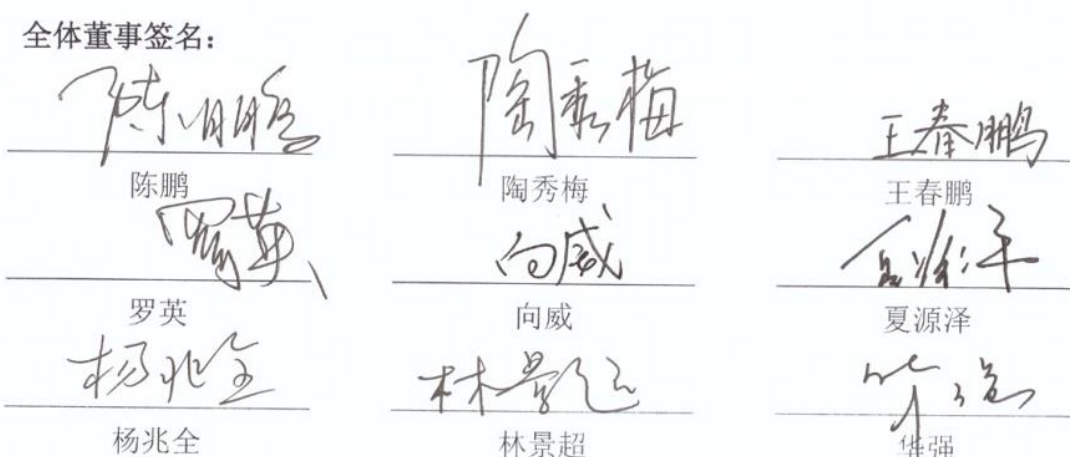 全体董事签名：
陈鹏 陶秀梅 王春鹏
陈鹏 陶秀梅 王春鹏
罗英 向威 夏源泽
罗英 向威 夏源泽
杨兆全 林景超 华强
杨兆全 林景超 华强